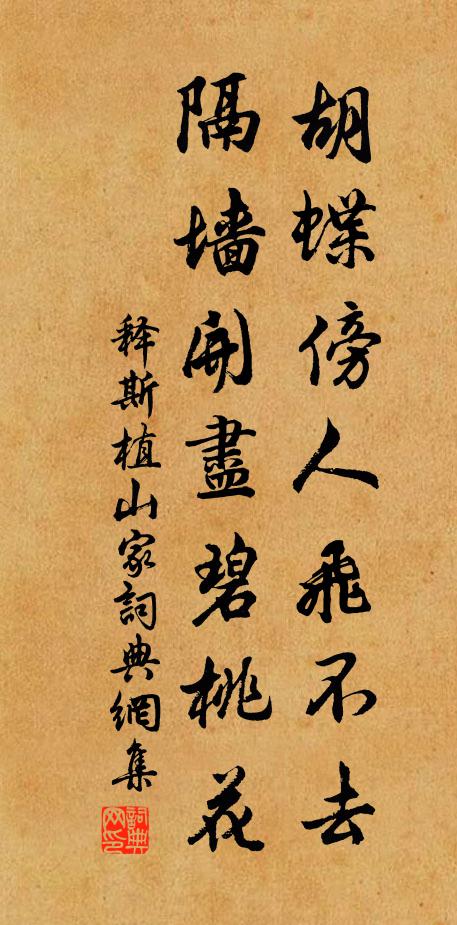 胡蝶傍人飛不去
隔墻開盡碧桃花
释斯植山家詞典網集
詞典网印